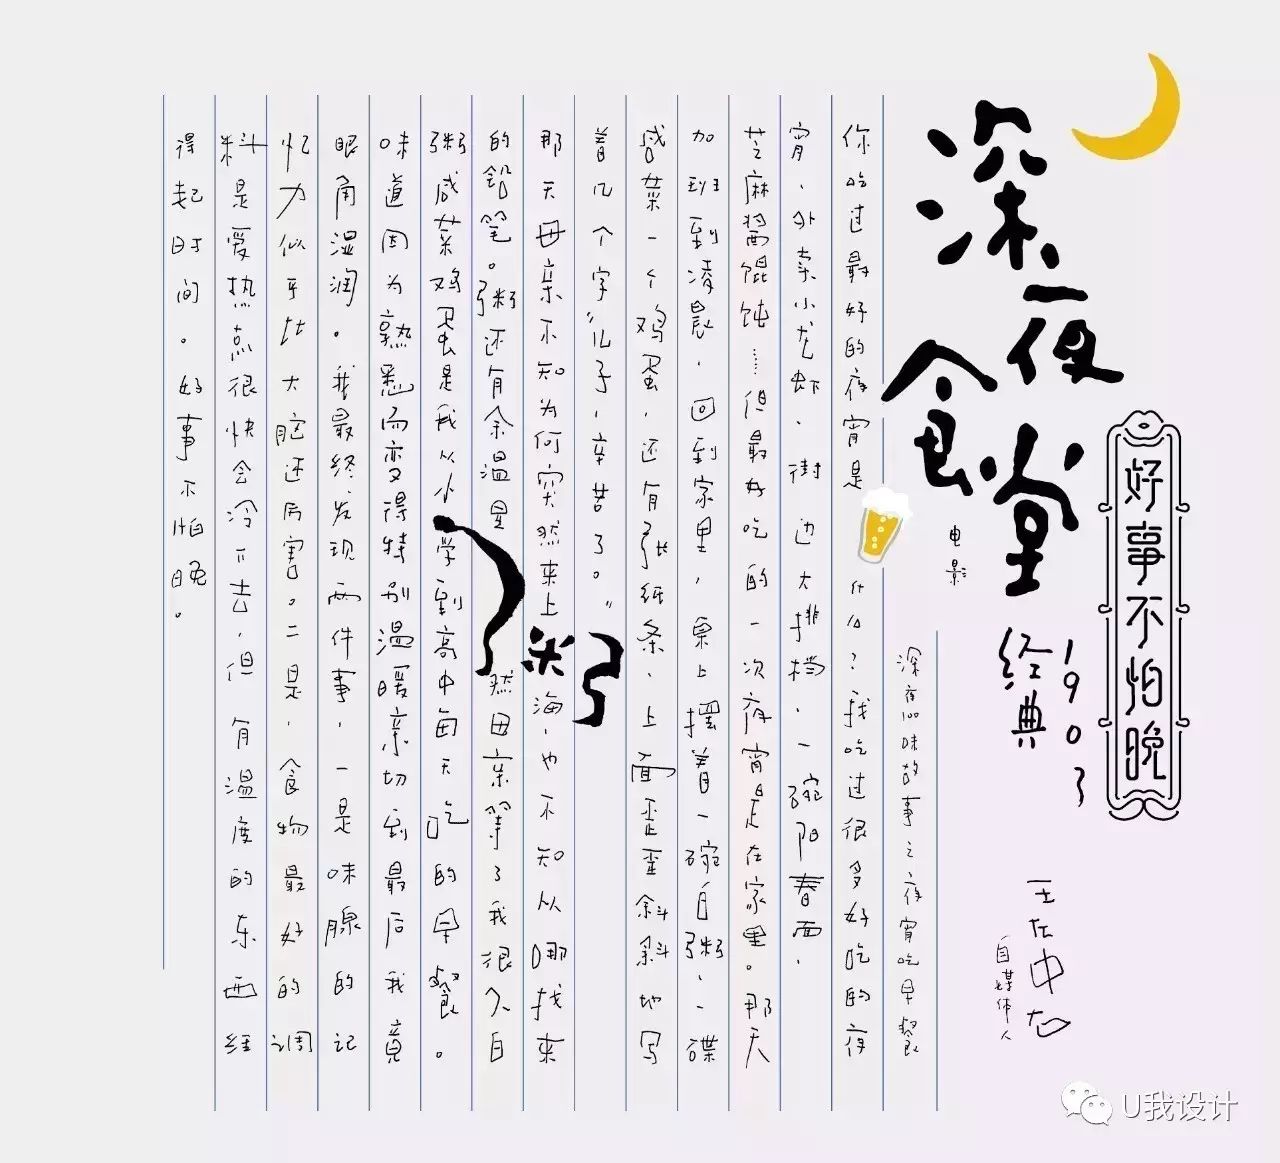 深夜食堂
电影
经典1903
好事不怕晚
王左中右
自媒体人
深夜100味故事之夜宵吃早餐
你吃过最好的夜宵是什么？我吃过很多好吃的夜
宵，外卖小龙虾、街边大排档、一碗阳春面、
芝麻酱馄饨……但最好吃的一次夜宵是在家里。那天
加班到凌晨，回到家里，桌上摆着一碗白粥、一碟
咸菜一个鸡蛋，还有张纸条，上面歪歪斜斜地写
着几个字“儿子，辛苦了。”
那天母亲不知为何突然来上海，也不知从哪找来
的铅笔。粥还有余温显然母亲等了我很久白
粥咸菜鸡蛋是我从小学到高中每天吃的早餐。
味道因为熟悉而变得特别温暖亲切到最后我竟
眼角湿润。我最终发现两件事，一是味腺的记
忆力似乎比大脑还厉害。二是，食物最好的调
料是爱热点很快会冷下去，但有温度的东西经
得起时间。好事不怕晚。
U我设计